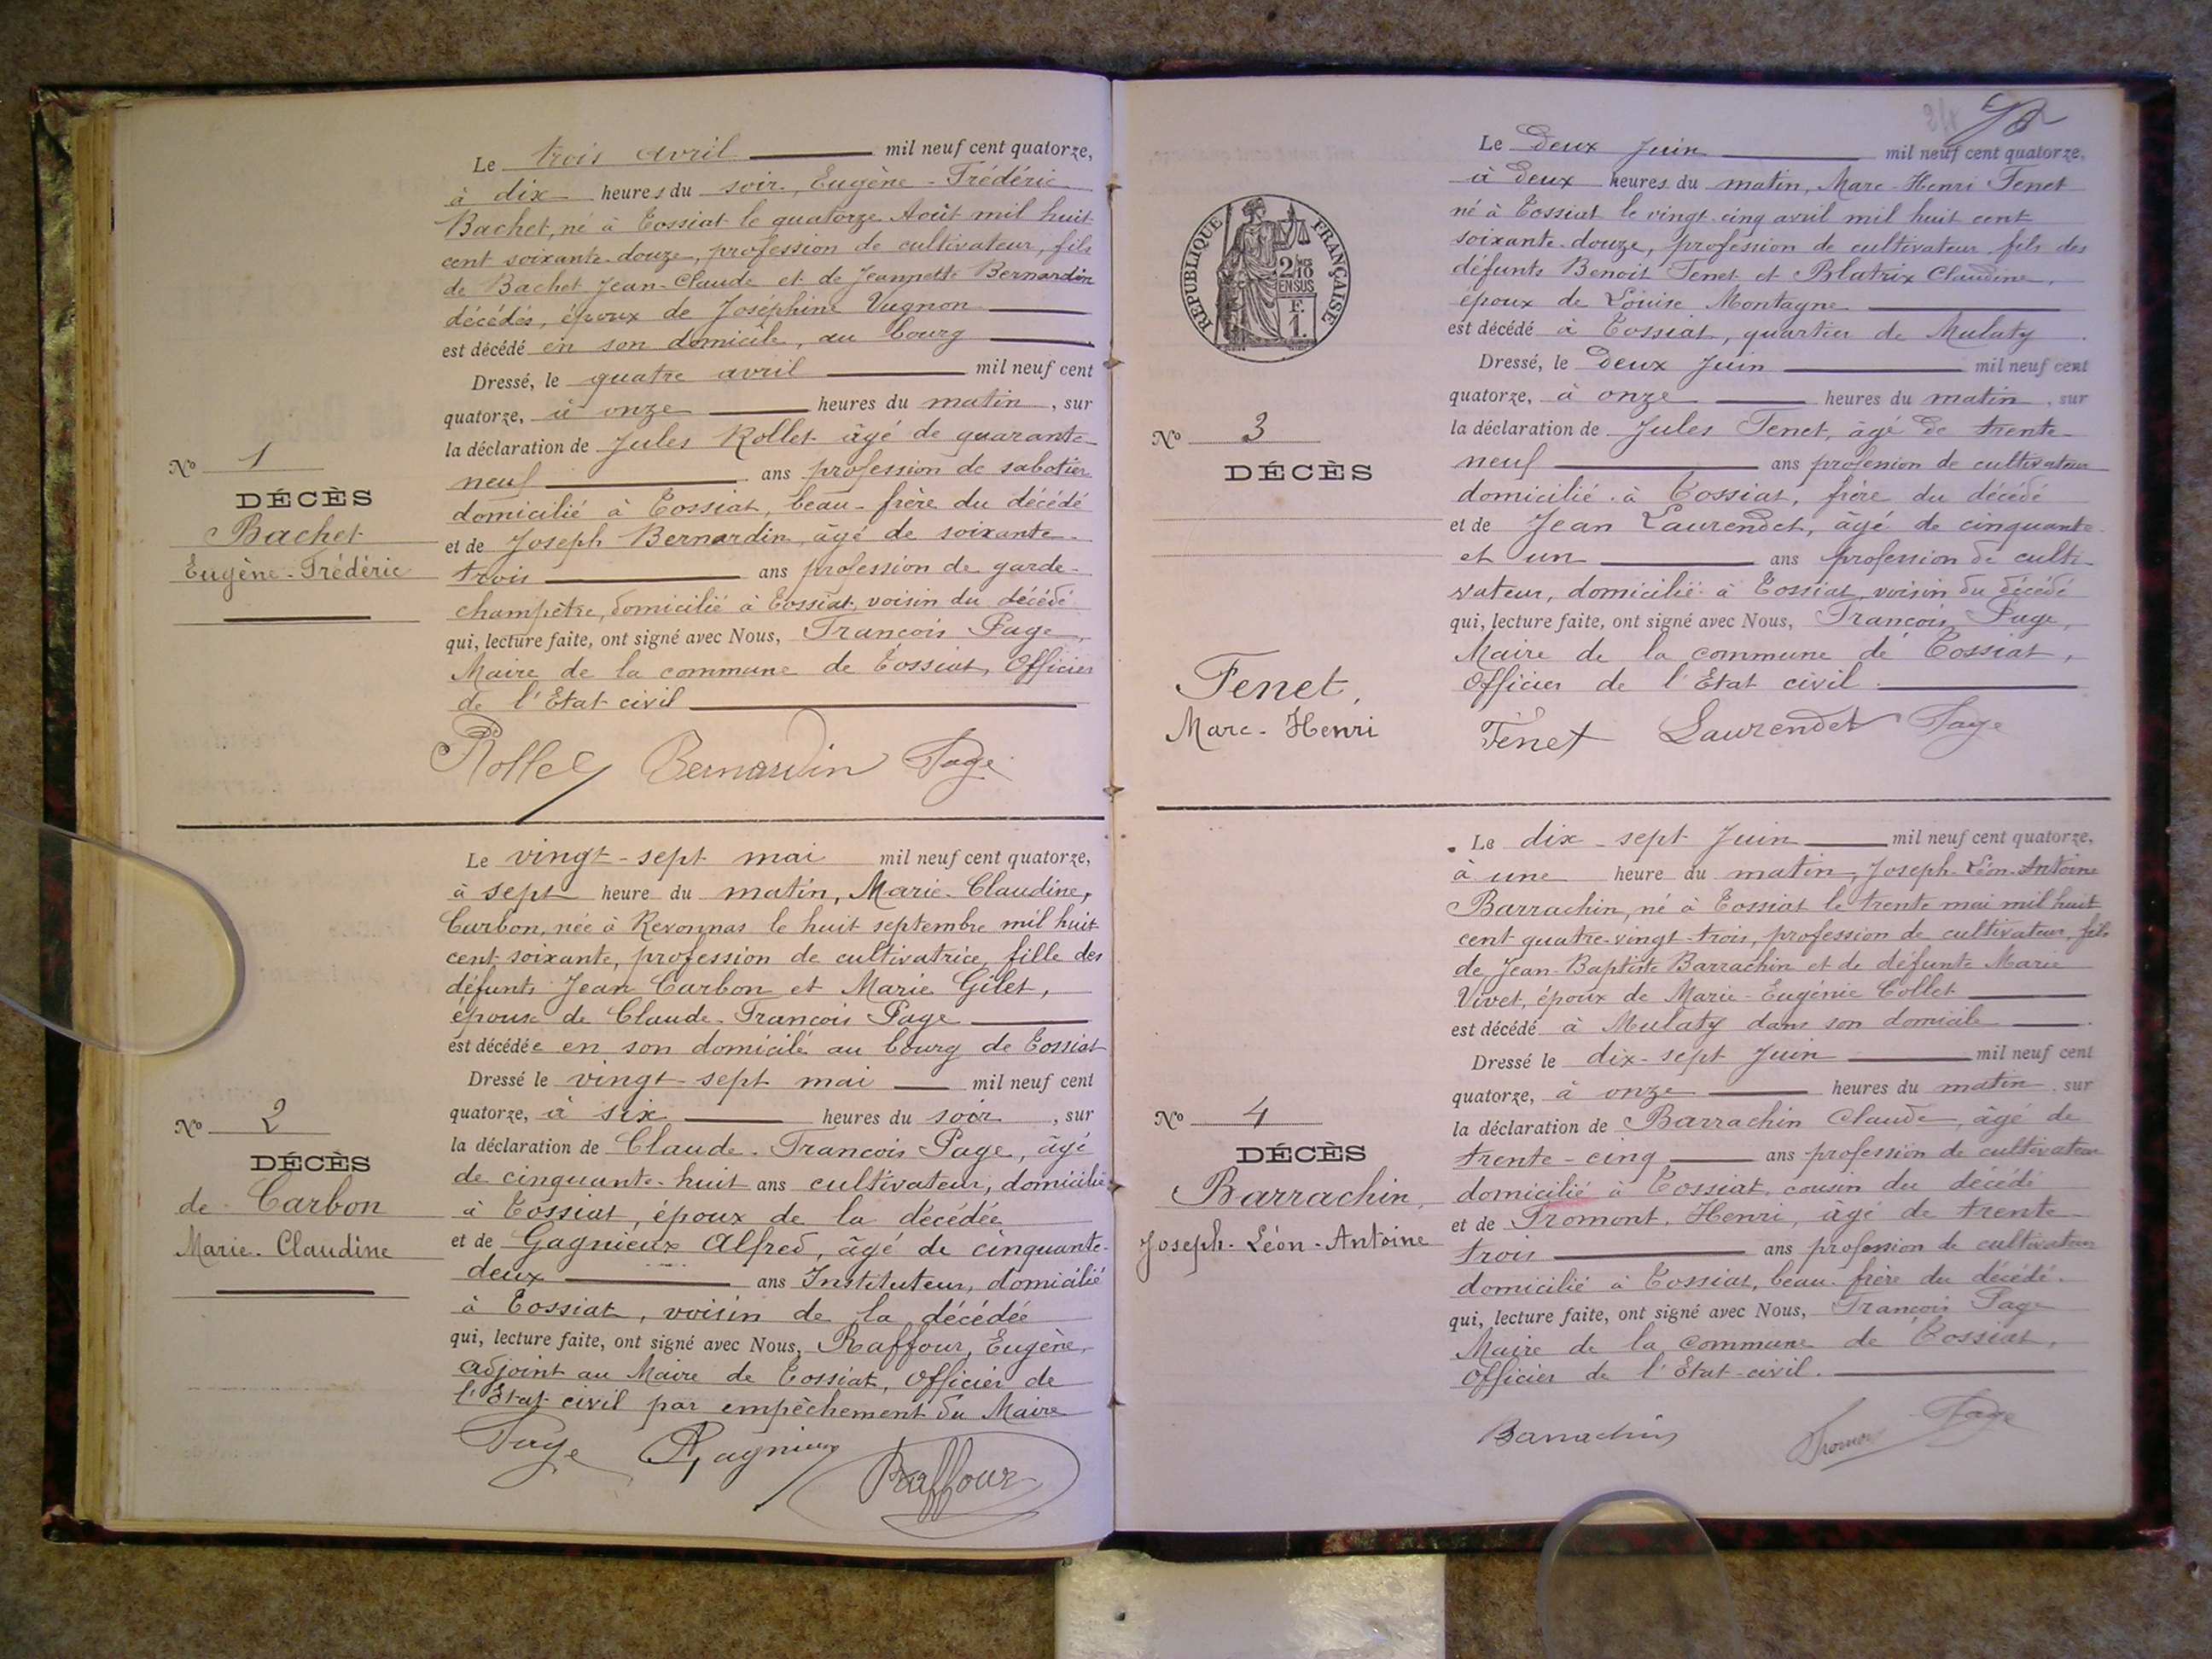 Le trois avril mil neuf cent quatorze,
à dix heures du soir, Eugène-Frédéric
Bachet, né à Tossiat le quatorze Août mil huit
cent soixante-douze, profession de cultivateur, fils
de Bachet Jean-Claude et de Jeannette Bernardin
décédés, époux de Joséphine Vugnon
est décédé en son domicile, au bourg
Dressé, le quatre avril mil neuf cent
quatorze, à onze heures du matin, sur
la déclaration de Jules Rollet âgé de quarante-
neuf ans profession de sabotier
domicilié à Tossiat, beau-frère du décédé
et de Joseph Bernardin âgé de soixante-
trois ans profession de garde-
champêtre, domicilié à Tossiat, voisin du décédé
qui, lecture faite, ont signé avec Nous, François Page,
Maire de la commune de Tossiat, Officier
de l'Etat civil
Rollet Bernardin Page
No 1
DÉCÈS
Bachet
Eugène-Frédéric
Le vingt-sept mai mil neuf cent quatorze,
à sept heure du matin, Marie-Claudine,
Carbon, née à Revonnas le huit septembre mil huit
cent soixante, profession de cultivatrice, fille des
défunts Jean Carbon et Marie Gilet,
épouse de Claude-François Page
est décédée en son domicile au bourg de Tossiat
Dressé le vingt-sept mai mil neuf cent
quatorze, à six heures du soir, sur
la déclaration de Claude-François Page, âgé
de cinquante-huit ans cultivateur, domicilié
à Tossiat, époux de la décédée
et de Gagnieux Alfred, âgé de cinquante-
deux ans Instituteur, domicilié
à Tossiat, voisin de la décédée
qui, lecture faite, ont signé avec Nous, Raffour, Eugène,
adjoint au Maire de Tossiat, Officier de
l'Etat civil par empêchement du Maire
Page Gagnieux
Raffour
No 2
DÉCÈS
de Carbon
Marie-Claudine
Le Deux Juin mil neuf cent quatorze,
à Deux heures du matin, Marc-Henri Tenet
né à Tossiat le vingt-cinq avril mil huit cent
soixante-douze, profession de cultivateur, fils des
défunts Benoit Tenet et Blatrix Claudine,
époux de Louise Montagne
est décédé à Tossiat, quartier de Mulaty.
Dressé, le Deux Juin mil neuf cent
quatorze, à onze heures du matin, sur
la déclaration de Jules Tenet, âgé de trente-
neuf ans profession de cultivateur
domicilié à Tossiat, frère du décédé
et de Jean Laurendet, âgé de cinquante-
et un ans profession de culti-
vateur, domicilié à Tossiat, voisin du décédé
qui, lecture faite, ont signé avec Nous, François Page,
Maire de la commune de Tossiat,
Officier de l'Etat civil.
Tenet Laurendet Page
RÉPUBLIQUE FRANÇAISE
2/10
EN SUS
F
1.
No 3
DÉCÈS
Tenet,
Marc-Henri
Le dix-sept Juin mil neuf cent quatorze,
à une heure du matin, Joseph-Léon-Antoine
Barrachin, né à Tossiat le trente mai mil huit
cent quatre-vingt-trois, profession de cultivateur, fils
de Jean-Baptiste Barrachin et de défunte Marie
Vivet, époux de Marie-Eugénie Collet
est décédé à Mulaty dans son domicile.
Dressé le dix-sept Juin mil neuf cent
quatorze, à onze heures du matin, sur
la déclaration de Barrachin Claude, âgé de
trente-cinq ans profession de cultivateur
domicilié à Tossiat, cousin du décédé
et de Fromont, Henri, âgé de trente-
trois ans profession de cultivateur
domicilié à Tossiat, beau-frère du décédé.
qui, lecture faite, ont signé avec Nous, François Page
Maire de la commune de Tossiat,
Officier de l'Etat-civil.
Barrachin Page
No 4
DÉCÈS
Barrachin,
Joseph-Léon-Antoine